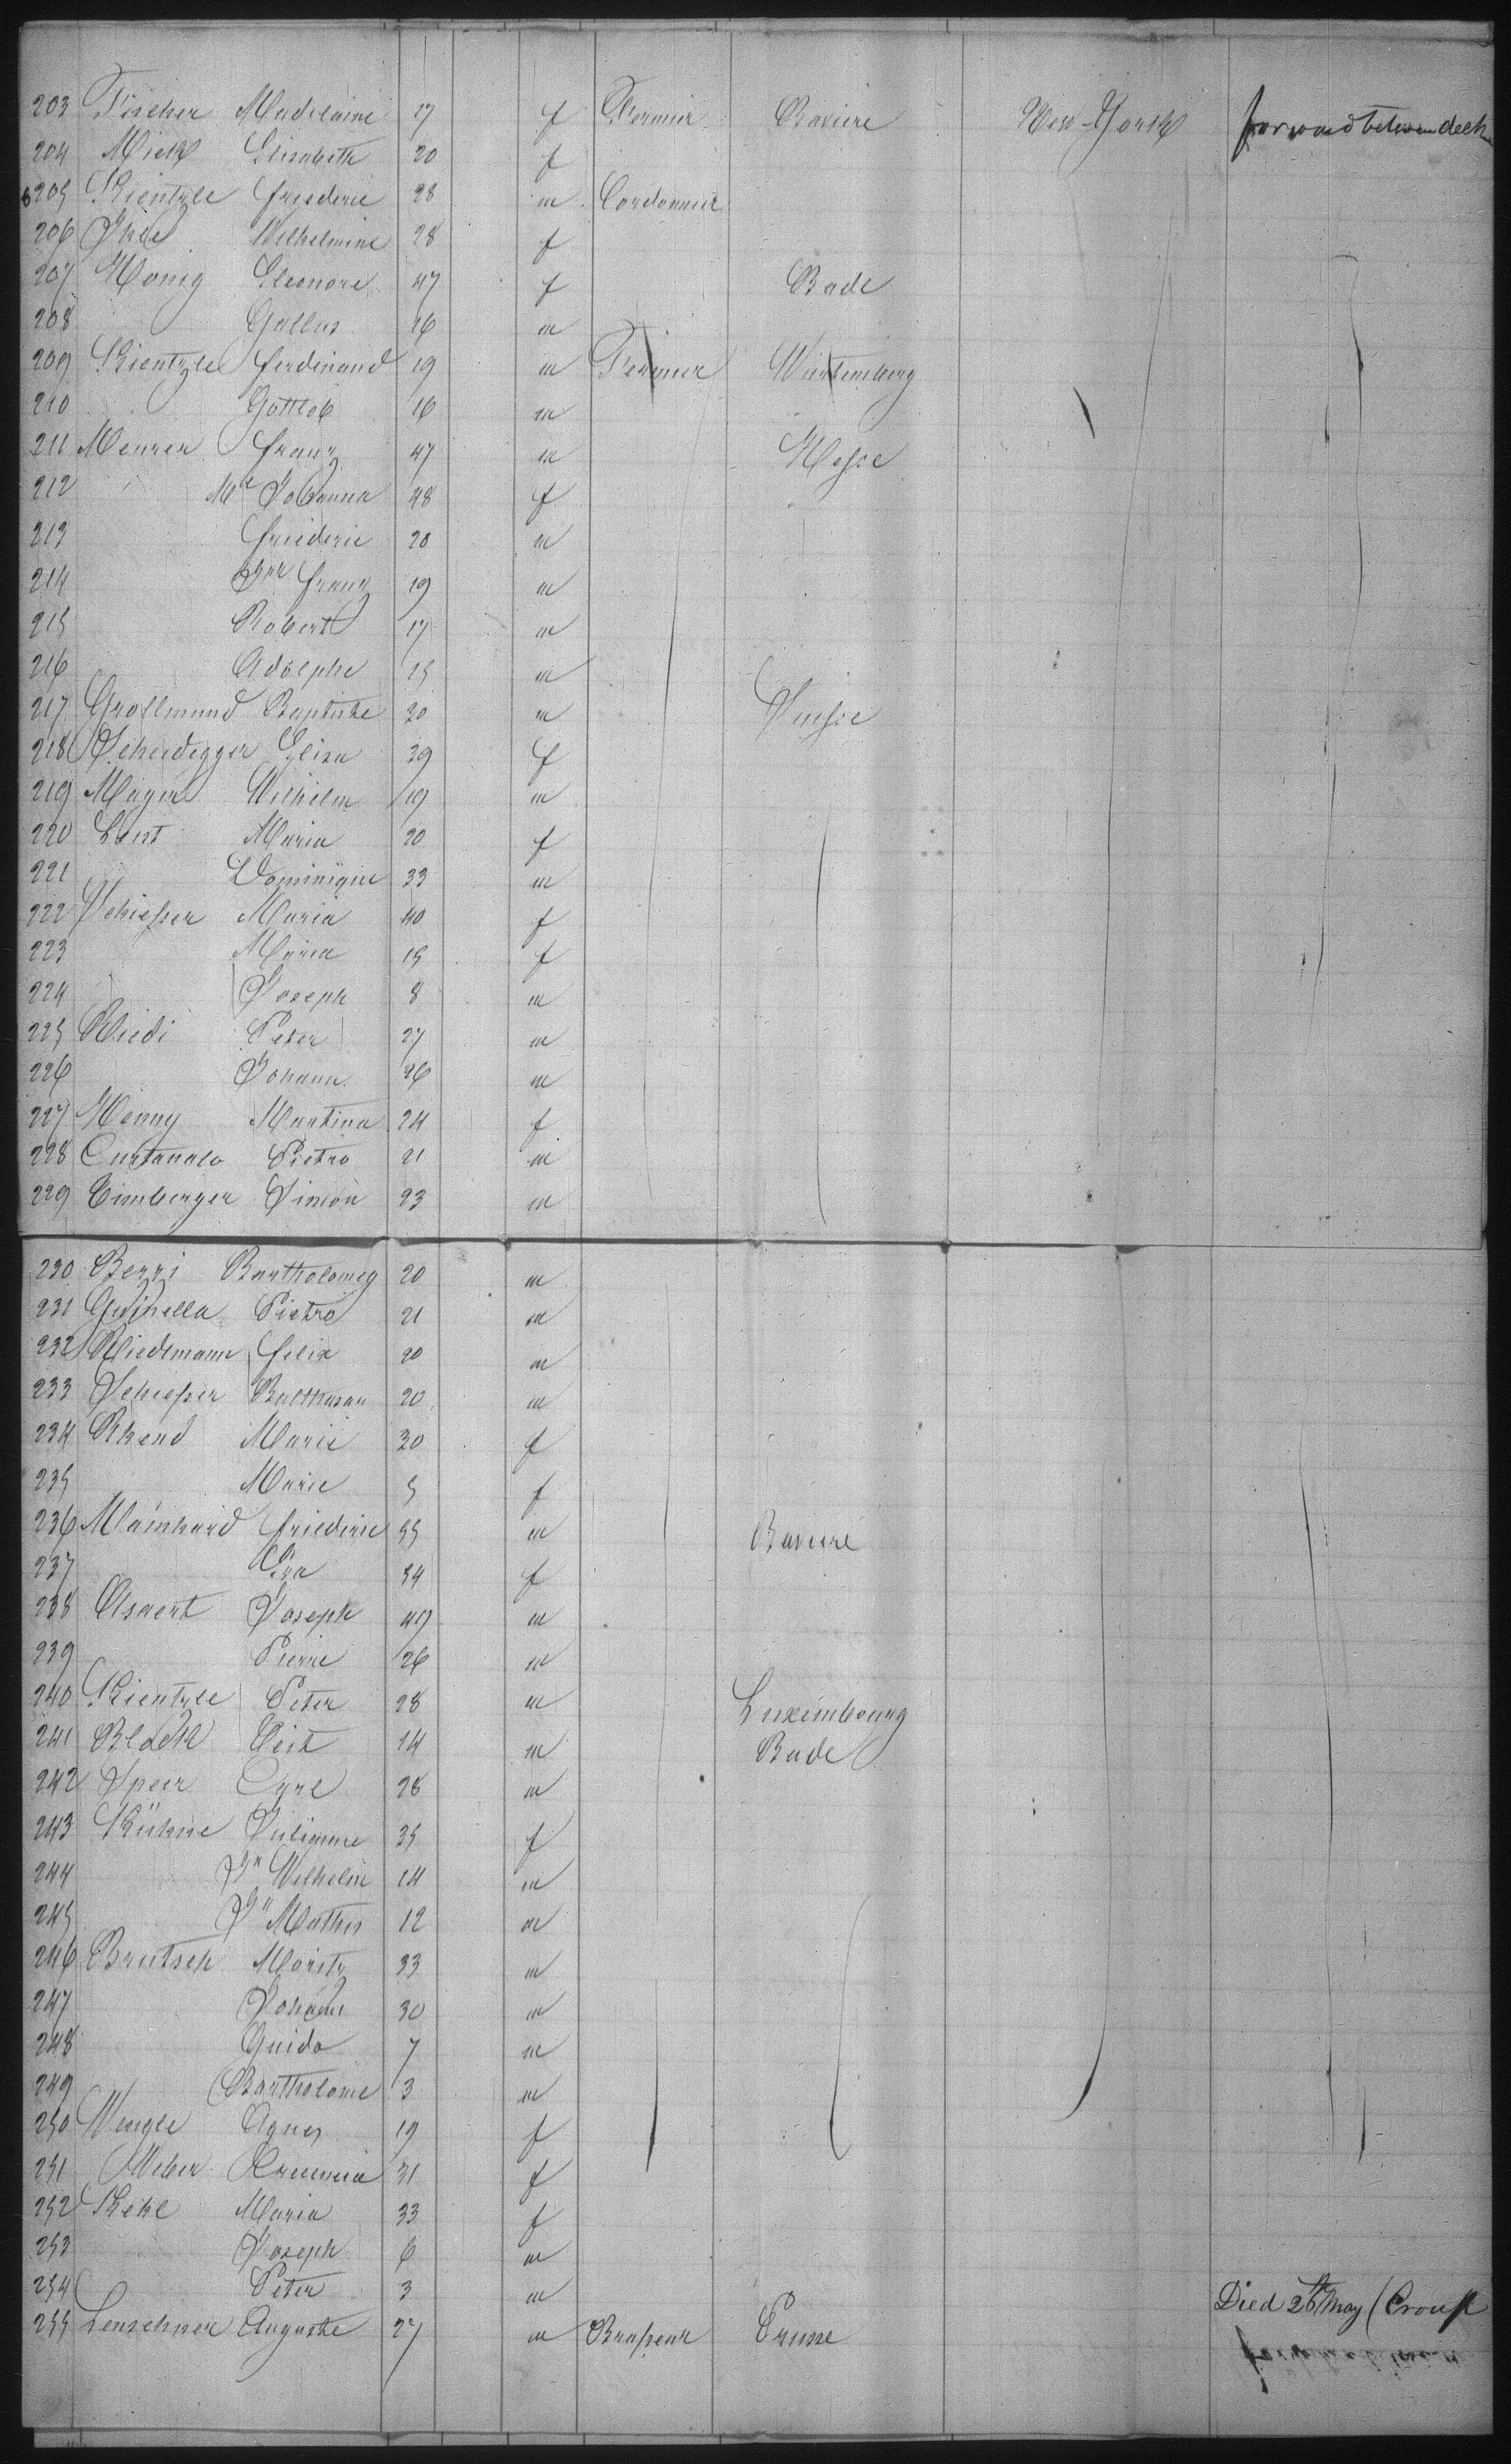 203 Fischer Madelaine 17 f Fermier Baviere New-York forward between deck
204 Mick Elisabeth 20 f
205 Kientzle friederic 28 m Cordonnier
206 Wilhelmine 28 f
207 Honig Eleonore 47 f Bade
208 Gallus 16 m
209 Kientzle ferdinand 19 m Fermier Wurtemberg
210 Gottlob 16 m
211 Meurer franz 47 m Hesse
212 Me Johanna 48 f
213 friederic 20 m
214 Jne franz 19 m
215 Robert 17 m
216 Adolphe 15 m
217 Grollmund Baptiste 30 m Suisse
218 Scheidegger Elisa 39 f
219 Mayer Wilhelm 19 m
220 Lent Maria 20 f
221 Dominique 33 m
222 Schiesser Maria 40 f
223 Maria 15 f
224 Joseph 8 m
225 Riedi Peter 27 m
226 Johann 26 m
227 Henny Martina 24 f
228 Pietro 21 m
229 Simon 23 m
230 Berri Bartholomey 20 m
231 Pietro 21 m
232 Riedemann felix 20 m
233 Schiesser Balthasar 20 m
234 Rhend Marie 30 f
235 Marie 5 f
236 Mainhard friederic 55 m Baviere
237 Eva 54 f
238 Joseph 49 m
239 Pierre 26 m
240 Kientzle Peter 28 m Luxembourg
241 Block Veit 14 m Bade
242 Speer Cyrl 28 m
243 Kühne Julianne 35 f
244 Jn Wilhelm 14 m
245 Jn Mathis 12 m
246 Brutsch Moritz 33 m
247 Johann 30 m
248 Guido 7 m
249 Bartholome 3 m
250 Wengle Agnes 19 f
251 Weber 31 f
252 Kehl Maria 33 f
253 Joseph 6 m
254 Peter 3 m Died 26th May (Croup
255 Lenschner Auguste 27 m Brasseur Prusse